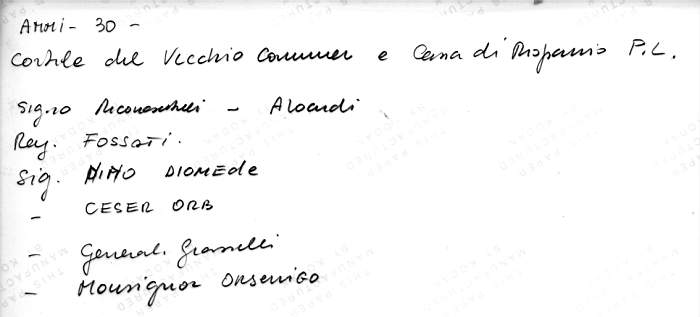 Anni - 30 -
Cortile del Vecchio Commer e Cassa di Risparmio P.L.
Sig.ro Riconoscibili - Aloardi
Rag. FOSSATI.
Sig. NINO DIOMEDE
- CESER ORB
- General. Grasselli
- Monsignor ORSENIGO